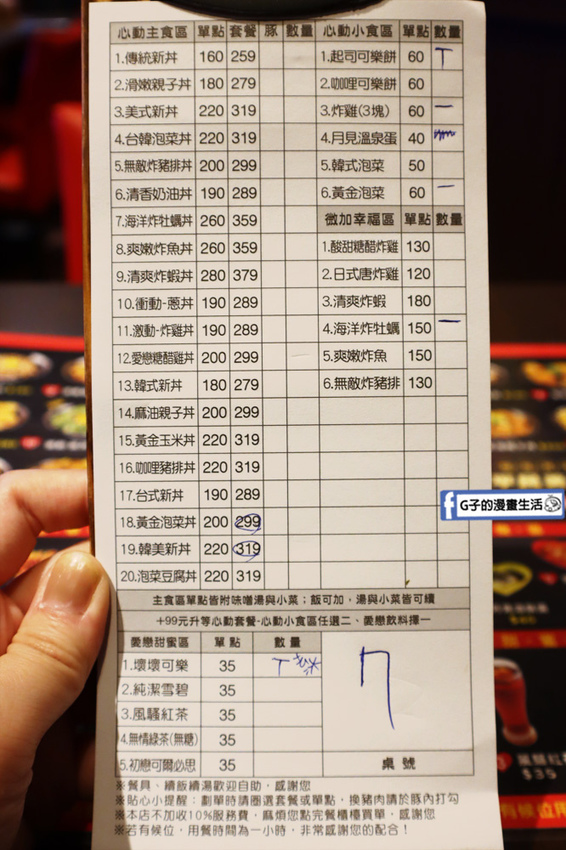 心動主食區 單點 套餐 豚 數量 心動小食區 單點 數量
1.傳統新丼 160 259 1.起司可樂餅 60 T
2.滑嫩親子丼 180 279 2.咖哩可樂餅 60
3.美式新丼 220 319 3.炸雞(3塊) 60 一
4.台韓泡菜丼 220 319 4.月見溫泉蛋 40
5.無敵炸豬排丼 200 299 5.韓式泡菜 50
6.清香奶油丼 190 289 6.黃金泡菜 60 一
7.海洋炸牡蠣丼 260 359 微加幸福區 單點 數量
8.爽嫩炸魚丼 260 359 1.酸甜糖醋炸雞 130
9.清爽炸蝦丼 280 379 2.日式唐炸雞 120
10.衝動-蔥丼 190 289 3.清爽炸蝦 180
11.激動-炸雞丼 190 289 4.海洋炸牡蠣 150 一
12.愛戀糖醋雞丼 200 299 5.爽嫩炸魚 150
13.韓式新丼 180 279 6.無敵炸豬排 130
14.麻油親子丼 200 299
15.黃金玉米丼 220 319
16.咖哩豬排丼 220 319
17.台式新丼 190 289
18.黃金泡菜丼 200 299
19.韓美新丼 220 319
20.泡菜豆腐丼 220 319
主食區單點皆附味噌湯與小菜；飯可加，湯與小菜皆可續
+99元升等心動套餐-心動小食區任選二、愛戀飲料擇一
愛戀甜蜜區 單點 數量
1.壞壞可樂 35 T
2.純潔雪碧 35
3.風騷紅茶 35
4.無情綠茶(無糖) 35
5.初戀可爾必思 35
7
桌號
※餐具、續飯續湯歡迎自助，感謝您
※貼心小提醒：劃單時請圈選套餐或單點，換豬肉請於豚內打勾
※本店不加收10%服務費，麻煩您點完餐櫃檯買單，感謝您
※若有候位，用餐時間為一小時，非常感謝您的配合！
f G子的漫畫生活
$35